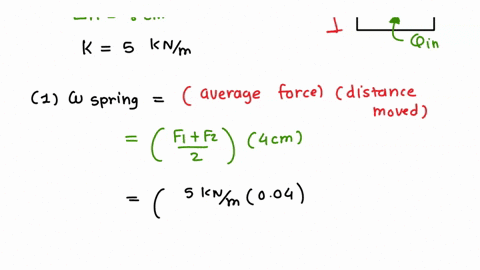 K = 5 KN/m
Qin
(1) W spring = (average force) (distance moved)
= (F1+F2/2) (4cm)
= ( 5 KN/m (0.04)